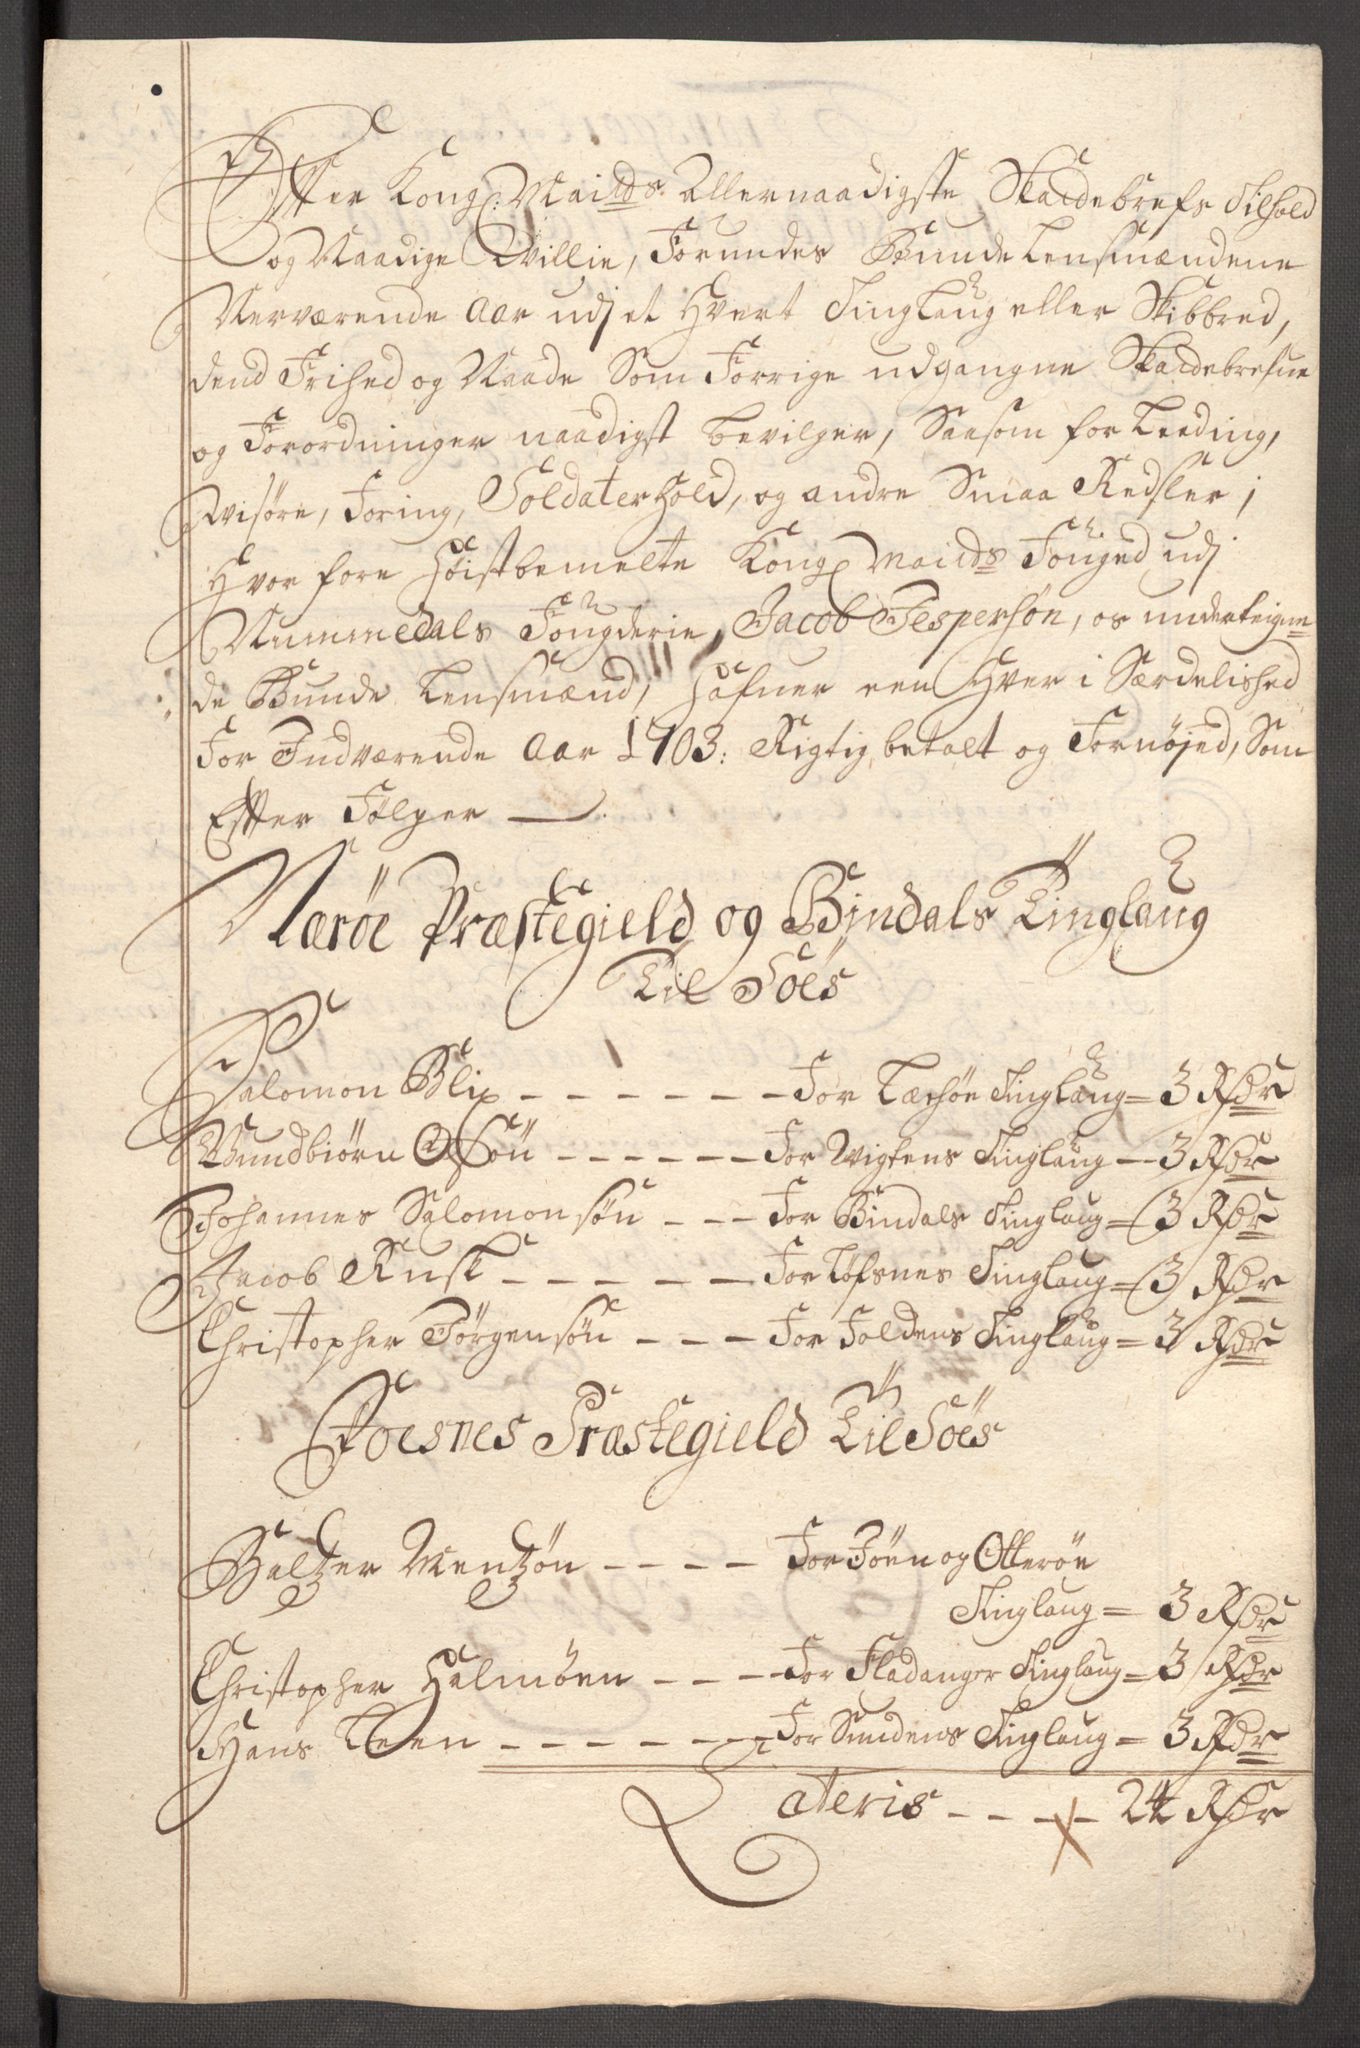 Effter Kongl: Maids: Allernaadigste Skattebrefs Tilhold
og Naadige Willie, Forundes Bunde Lensmændene
Nerværende Aar udj et Hvert Tinglaug eller Skibbred,
dend Frihed og Naade Som Forrige udgangne Skattebrefue
og Forordninger naadigst bevilger, Saasom for Leeding,
Wisøre, Foring, Soldaterhold, og andre Smaa Redsler;
Hvor fore Høistbemelte Kongl Maids Fouged udj
Nummedals Fougderie, Jacob Jespersøn, os underteigne=
de Bunde Lensmænd, Hafuer een Hver i Særdelished
For Indværende Aar 1703: Rigtig betalt og Fornøjed, Som
Effter Følger
Nærøe Præstegield og Bindals Tinglaug
Til Søes
Salomon Blix - - - - - - - For Lechøe Tinglaug = 3 Rdr
Gundbiørn Olsøn - - - - - - For Wigtens Tinglaug - 3 Rdr
Johannes Salomonsøn - - - For Bindals Tinglaug = 3 Rdr
Jacob Rusk - - - - - - For Løfsnes Tinglaug = 3 Rdr
Christopher Jørgensøn - - - For Foldens Tinglaug = 3 Rdr
Foesnes Præstegield Til Søes
Baltzer Mentzøn - - - - For Jøen og Otterøe
Tinglaug = 3 Rdr
Christopher Halmøen - - - For Fladanger Tinglaug = 3 Rdr
Hans Leen - - - - - - For Sundens Tinglaug = 3 Rdr
Lateris - - - - 24 Rdr